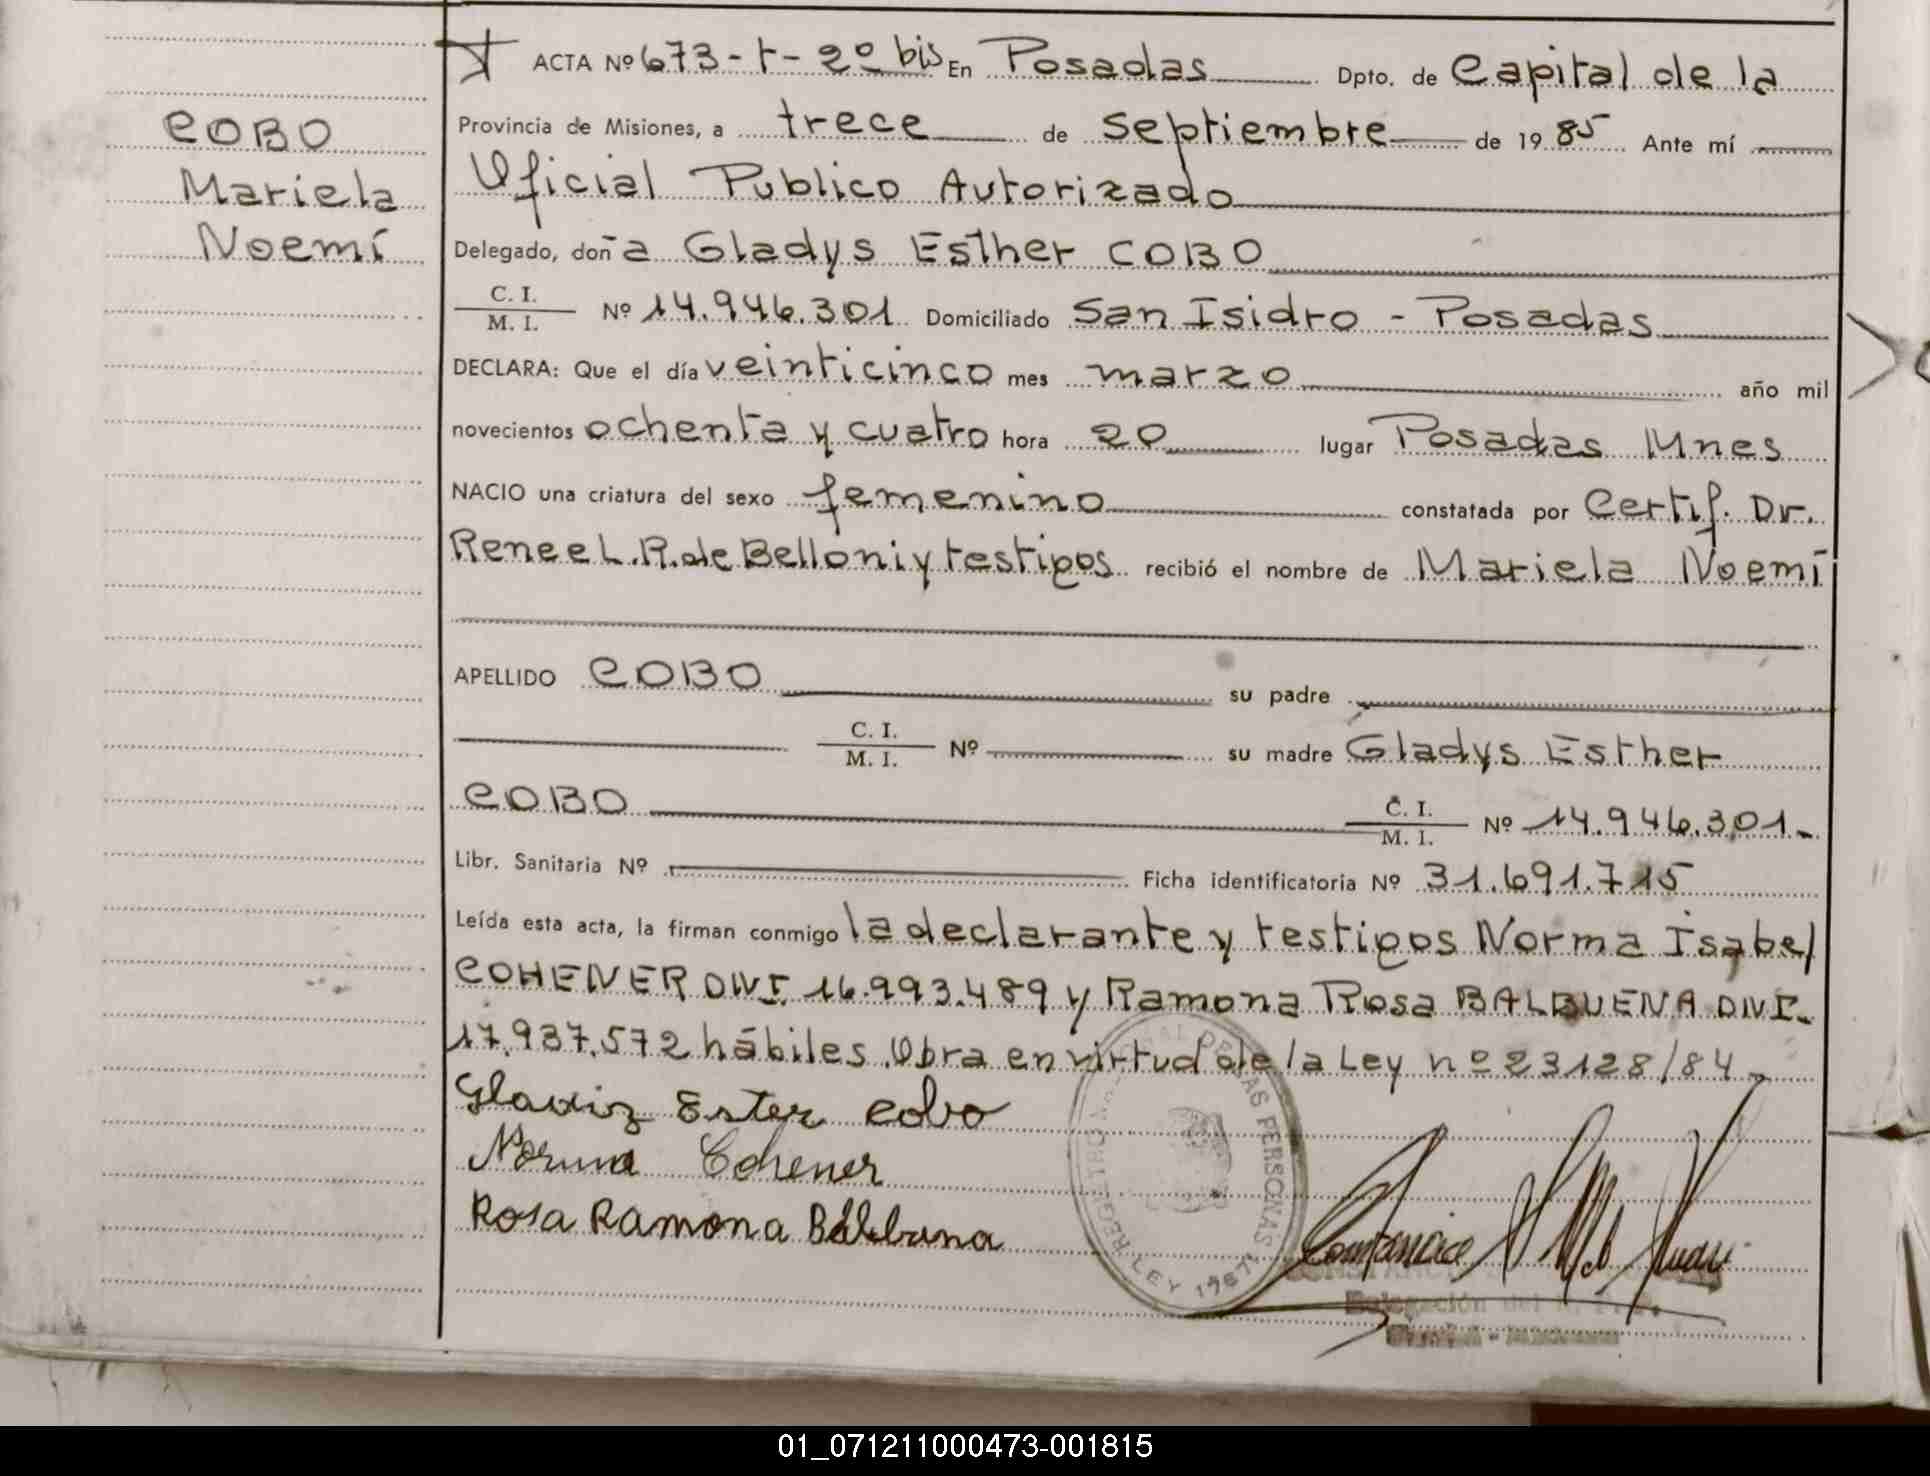 COBO
Mariela
Noemí
ACTA Nº 673-t-2º bis En Posadas Dpto. de Capital de la
Provincia de Misiones, a trece de septiembre de 1985 Ante mí
Oficial Publico Autorizado
Delegado, doña Gladys Esther COBO
C. I.
M. I. Nº 14.946.301 Domiciliado San Isidro - Posadas
DECLARA: Que el día veinticinco mes marzo año mil
novecientos ochenta y cuatro hora 20 lugar Posadas Mnes
NACIO una criatura del sexo femenino constatada por Certif. Dr.
Renee L. R. de Belloni y testigos recibió el nombre de Mariela Noemí
APELLIDO COBO su padre
C. I.
M. I. Nº su madre Gladys Esther
COBO C. I.
M. I. Nº 14.946.301.-
Libr. Sanitaria Nº Ficha identificatoria Nº 31.691.715
Leída esta acta, la firman conmigo la declarante y testigos Norma Isabel
COHENER DNI. 16.993.489 y Ramona Rosa BALBUENA DNI.
17.937.572 hábiles. Obra en virtud de la Ley nº 23128/84.-
Gladiz Ester Cobo
Norma Cohener
Rosa Ramona Balbuena
REGISTRO DE LAS PERSONAS
LEY
Delegación del
01_071211000473-001815